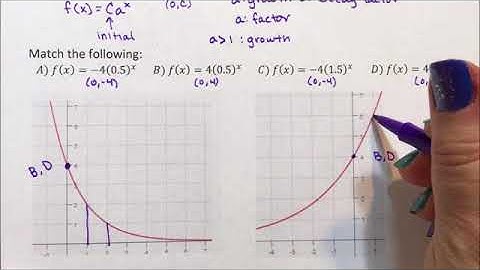 f(x) = Ca^x (0,C)
a: factor
initial a>1 : growth
Match the following:
A) f(x) = −4(0.5)^x B) f(x) = 4(0.5)^x C) f(x) = −4(1.5)^x D) f(x) = 4
(0,-4) (0,4) (0,-4) (0,4)
B, D
B, D